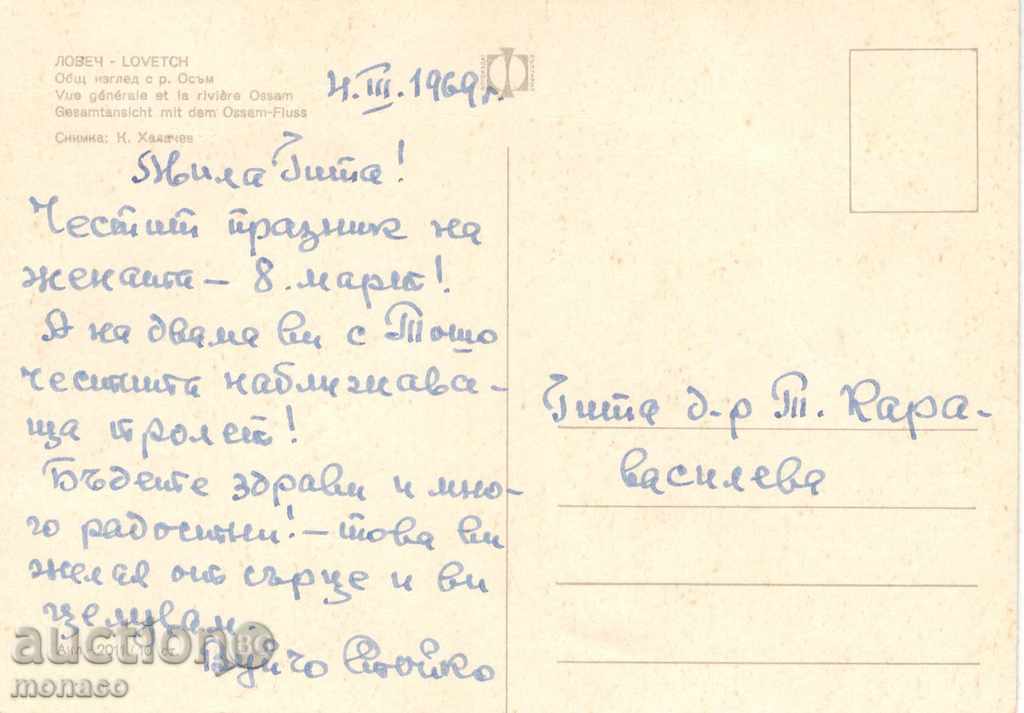 ЛОВЕЧ - LOVETCH
Общ изглед с р. Осъм
Vue générale et la rivière Ossam
Gesamtansicht mit dem Ossam-Fluss
Снимка: К. Халачев
4.III.1969 г.
Мила Гита!
Честит празник на
жената – 8. март!
А на двама ви с Тошо
честита наближава-
ща пролет!
Бъдете здрави и мно-
го радостни! – това ви
желая от сърце и ви
целувам.
Вуйчо Стойко
Гита д-р Т. Кара-
василева
auction.bg
monaco